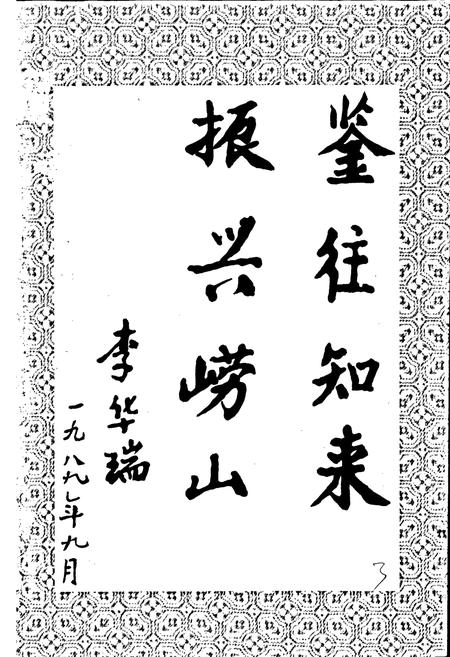 鉴往知来
振兴崂山
李华瑞
一九八九年九月
3